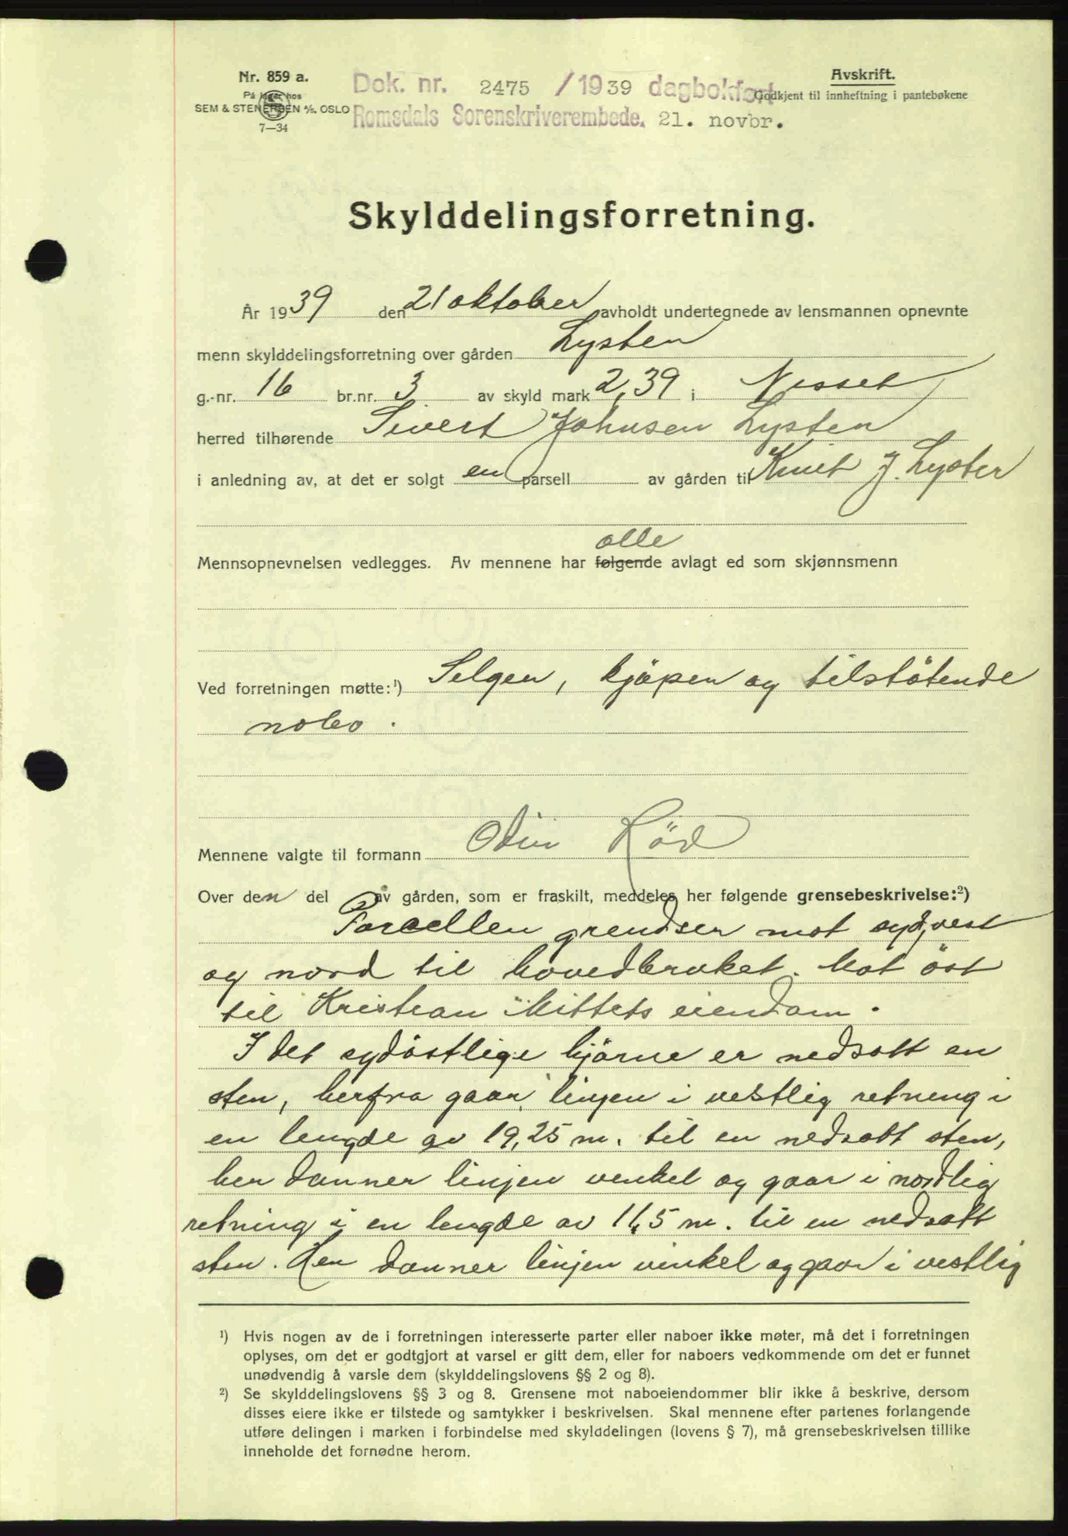 Nr. 859 a.
På lager hos
SEM & STENERSEN A/S. OSLO
7—34
Dok. nr. 2475 / 1939 dagbokført
Romsdals Sorenskriverembede. 21. novbr.
Avskrift.
Godkjent til innheftning i pantebøkene
Skylddelingsforretning.
År 1939 den 21 oktober avholdt undertegnede av lensmannen opnevnte
menn skylddelingsforretning over gården Lysten
g.-nr. 16 br.nr. 3 av skyld mark 2,39 i Nesset
herred tilhørende Sivert Johnsen Lysten
i anledning av, at det er solgt en parsell av gården til Knut J. Lysten
alle
Mennsopnevnelsen vedlegges. Av mennene har følgende avlagt ed som skjønnsmenn
Ved forretningen møtte:¹) Selgen, kjöpen og tilstötende
nabo.
Mennene valgte til formann Odin Röd
Over den del av gården, som er fraskilt, meddeles her følgende grensebeskrivelse:²)
Parcellen grendser mot syd, vest
og nord til hovedbruket. Mot öst
til Kristian Mittets eiendom.
I det sydöstlige hjörne er nedsatt en
sten, herfra gaar linjen i vestlig retning i
en lengde av 19,25 m. til en nedsatt sten,
her danner linjen venkel og gaar i nordlig
retning i en lengde av 11,5 m. til en nedsatt
sten. Her danner linjen vinkel og gaar i vestlig
¹) Hvis nogen av de i forretningen interesserte parter eller naboer ikke møter, må det i forretningen
oplyses, om det er godtgjort at varsel er gitt dem, eller for naboers vedkommende om det er funnet
unødvendig å varsle dem (skylddelingslovens §§ 2 og 8).
²) Se skylddelingslovens §§ 3 og 8. Grensene mot naboeiendommer blir ikke å beskrive, dersom
disses eiere ikke er tilstede og samtykker i beskrivelsen. Skal mennene efter partenes forlangende
utføre delingen i marken i forbindelse med skylddelingen (lovens § 7), må grensebeskrivelsen tillike
inneholde det fornødne herom.